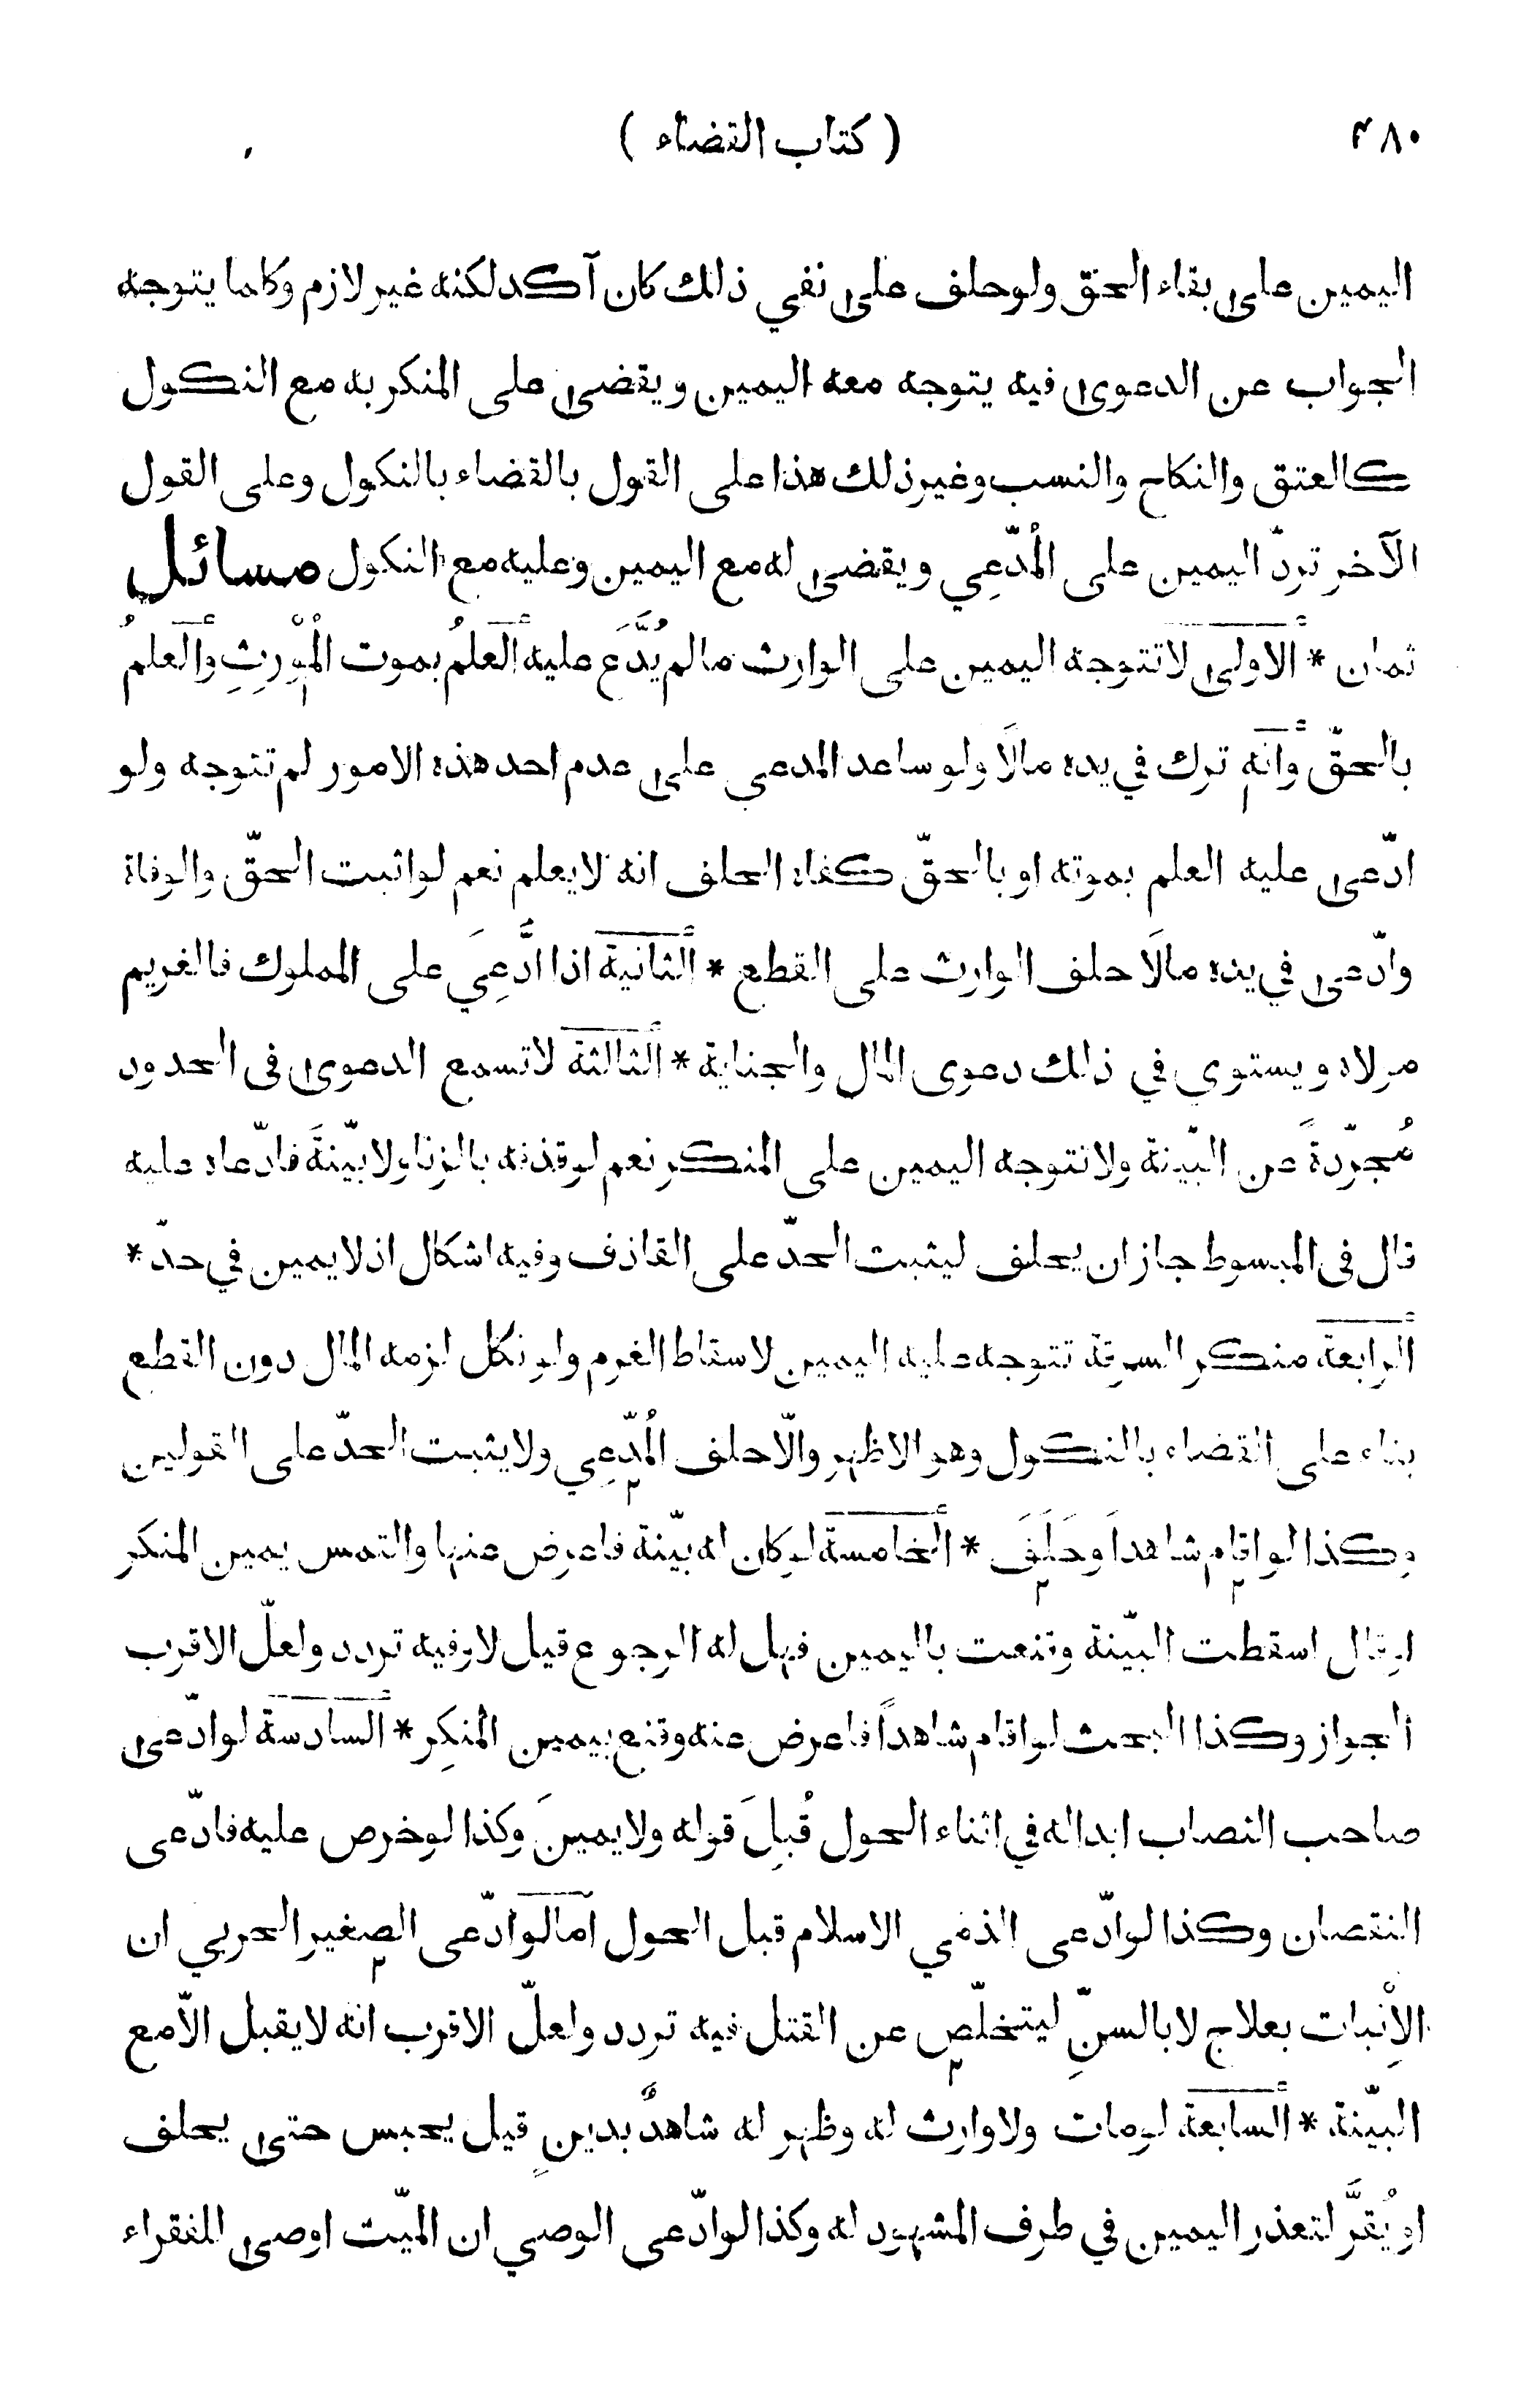 ٤٨٠ ( كتاب القضاء )
اليمين على بقاء الحقّ ولو حلف على نفي ذلك كان آكد لكنه غير لازم وكلما يتوجه
الجواب عن الدعوى فيه يتوجه معه اليمين ويقضى على المنكر به مع النكول
كالعتق والنكاح والنسب وغير ذلك هذا على القول بالقضاء بالنكول وعلى القول
الآخر تردّ اليمين على المُدّعِي ويقضى له مع اليمين وعليه مع النكول مسائل
ثمان * الاولى لا تتوجه اليمين على الوارث ما لم يُدَّعَ عليه العلمُ بموت المُوْرِثِ والعلمُ
بالحقّ وانّه ترك في يده مالًا ولو ساعد المدعي على عدم احد هذه الامور لم تتوجه ولو
ادّعى عليه العلم بموته او بالحقّ كفاه الحلف انه لا يعلم نعم لو اثبت الحقّ والوفاة
وادّعى في يده مالًا حلف الوارث على القطع * الثانية اذا ادَّعِيَ على المملوك فالغريم
مولاه ويستوي في ذلك دعوى المال والجناية * الثالثة لا تسمع الدعوى فى الحدود
مُجرّدةً عن البّينة ولا تتوجه اليمين على المنكر نعم لو قذفه بالزناء ولا بيّنةَ فادّعاه عليه
قال فى المبسوط جاز ان يحلف ليثبت الحدّ على القاذف وفيه اشكال اذ لا يمين في حدّ *
الرابعة منكر السرقة تتوجه عليه اليمين لاسقاط الغرم ولو نكل لزمه المال دون القطع
بناء على القضاء بالنكول وهو الاظهر والّا حلف المُدّعِي ولا يثبت الحدّ على القولين
وكذا لو اقام شاهداً وحَلَفَ * الخامسة لو كان له بيّنة فاعرض عنها والتمس يمين المنكر
او قال اسقطت البيّنة وقنعت باليمين فهل له الرجوع قيل لا وفيه تردد ولعلّ الاقرب
الجواز وكذا البحث لو اقام شاهداً فاعرض عنه وقنع بيمين المنكِر * السادسة لو ادّعى
صاحب النصاب ابداله في اثناء الحول قُبلَ قوله ولا يمينَ وكذا لو خرص عليه فادّعى
النقصان وكذا لو ادّعى الذمي الاسلام قبل الحول اما لو ادّعى الصغير الحربي ان
الاِنْبات بعلاج لا بالسنِّ ليتخلّص عن القتل فيه تردد ولعلّ الاقرب انه لا يقبل الّا مع
البيّنة * السابعة لو مات ولا وارث له وظهر له شاهدٌ بدينٍ قيل يحبس حتى يحلف
او يُقرَّ لتعذر اليمين في طرف المشهود له وكذا لو ادّعى الوصي ان الميّت اوصى للفقراء